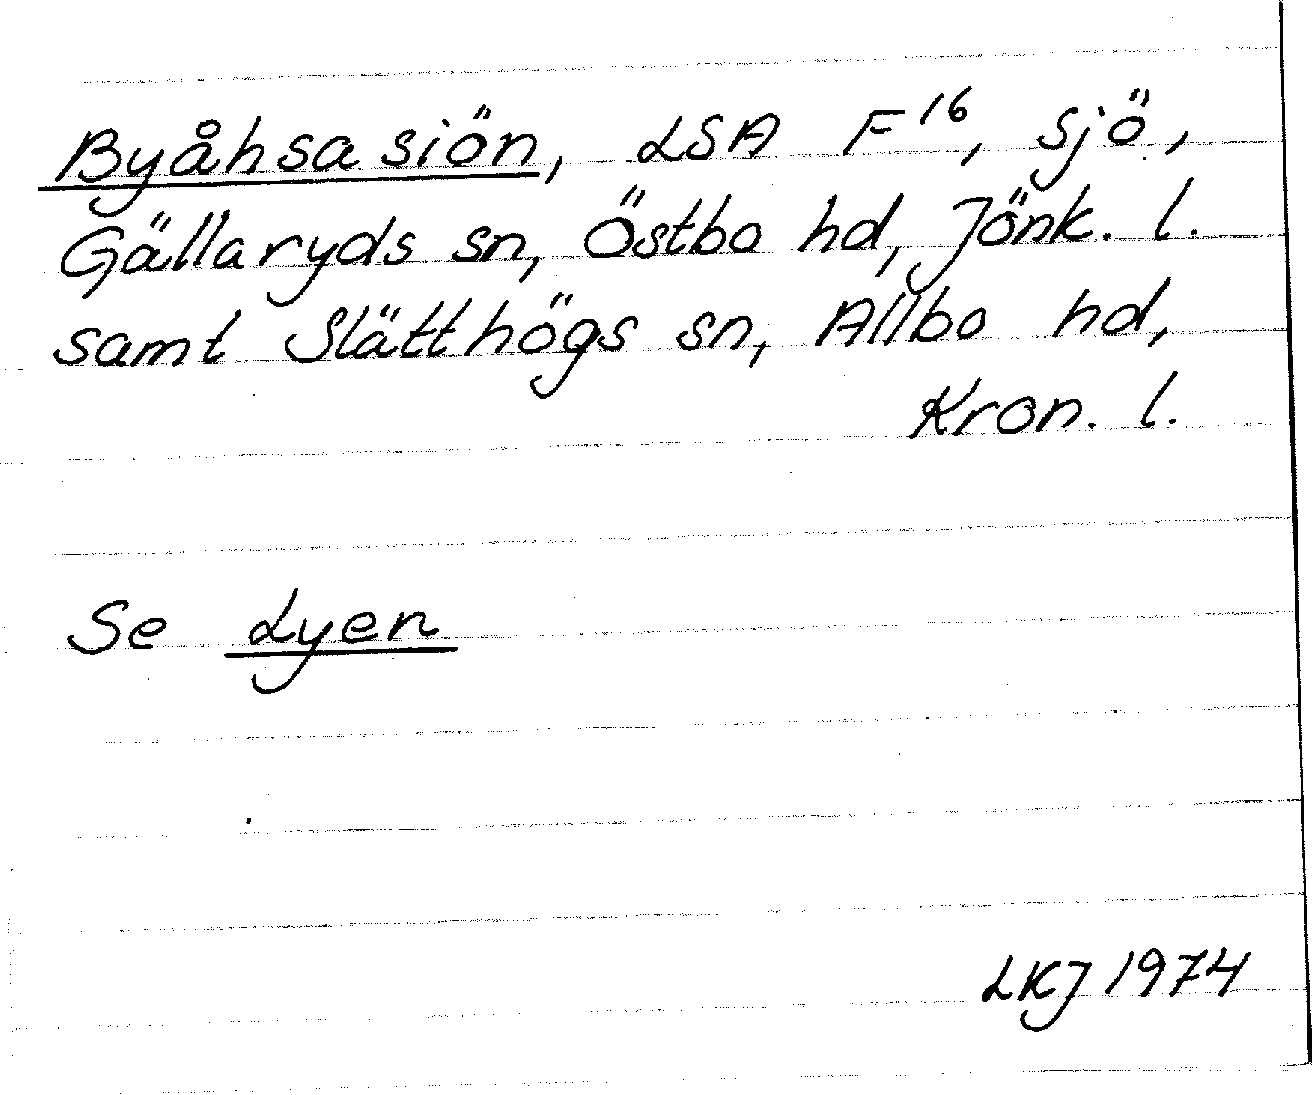 Byåhsasiön, LSA F16, sjö,
Gällaryds sn, Östbo hd, Jönk. l.
samt Slätthögs sn, Allbo hd,
Kron. l.
Se Lyen
LKJ 1974